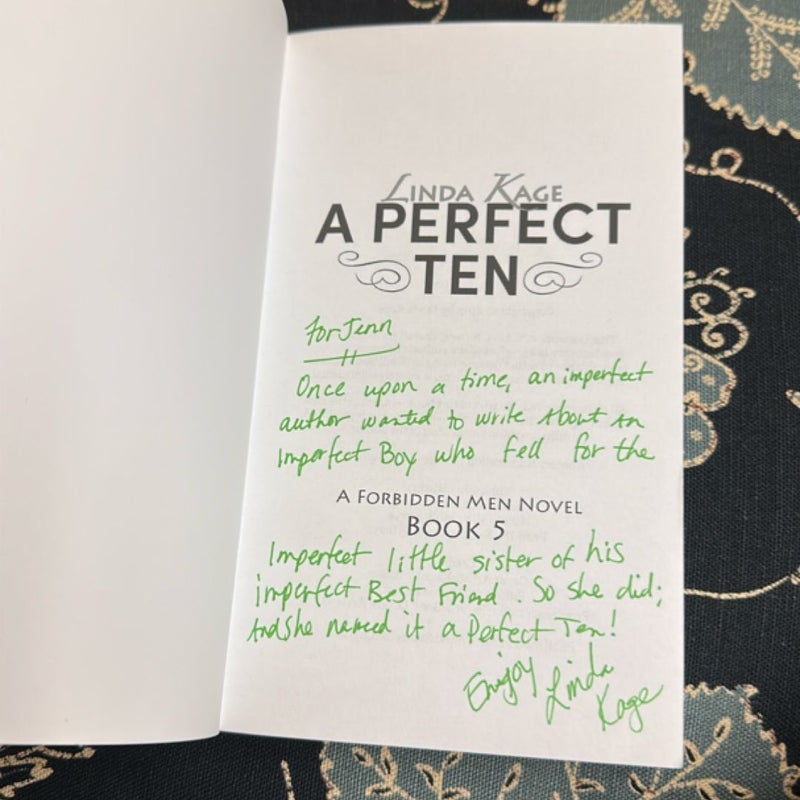 LINDA KAGE
A PERFECT
TEN
For Jenn
Once upon a time, an imperfect
author wanted to write About an
Imperfect Boy who fell for the
A FORBIDDEN MEN NOVEL
BOOK 5
Imperfect little sister of his
imperfect Best Friend. So she did;
And she named it a Perfect Ten!
Enjoy
Linda
Kage